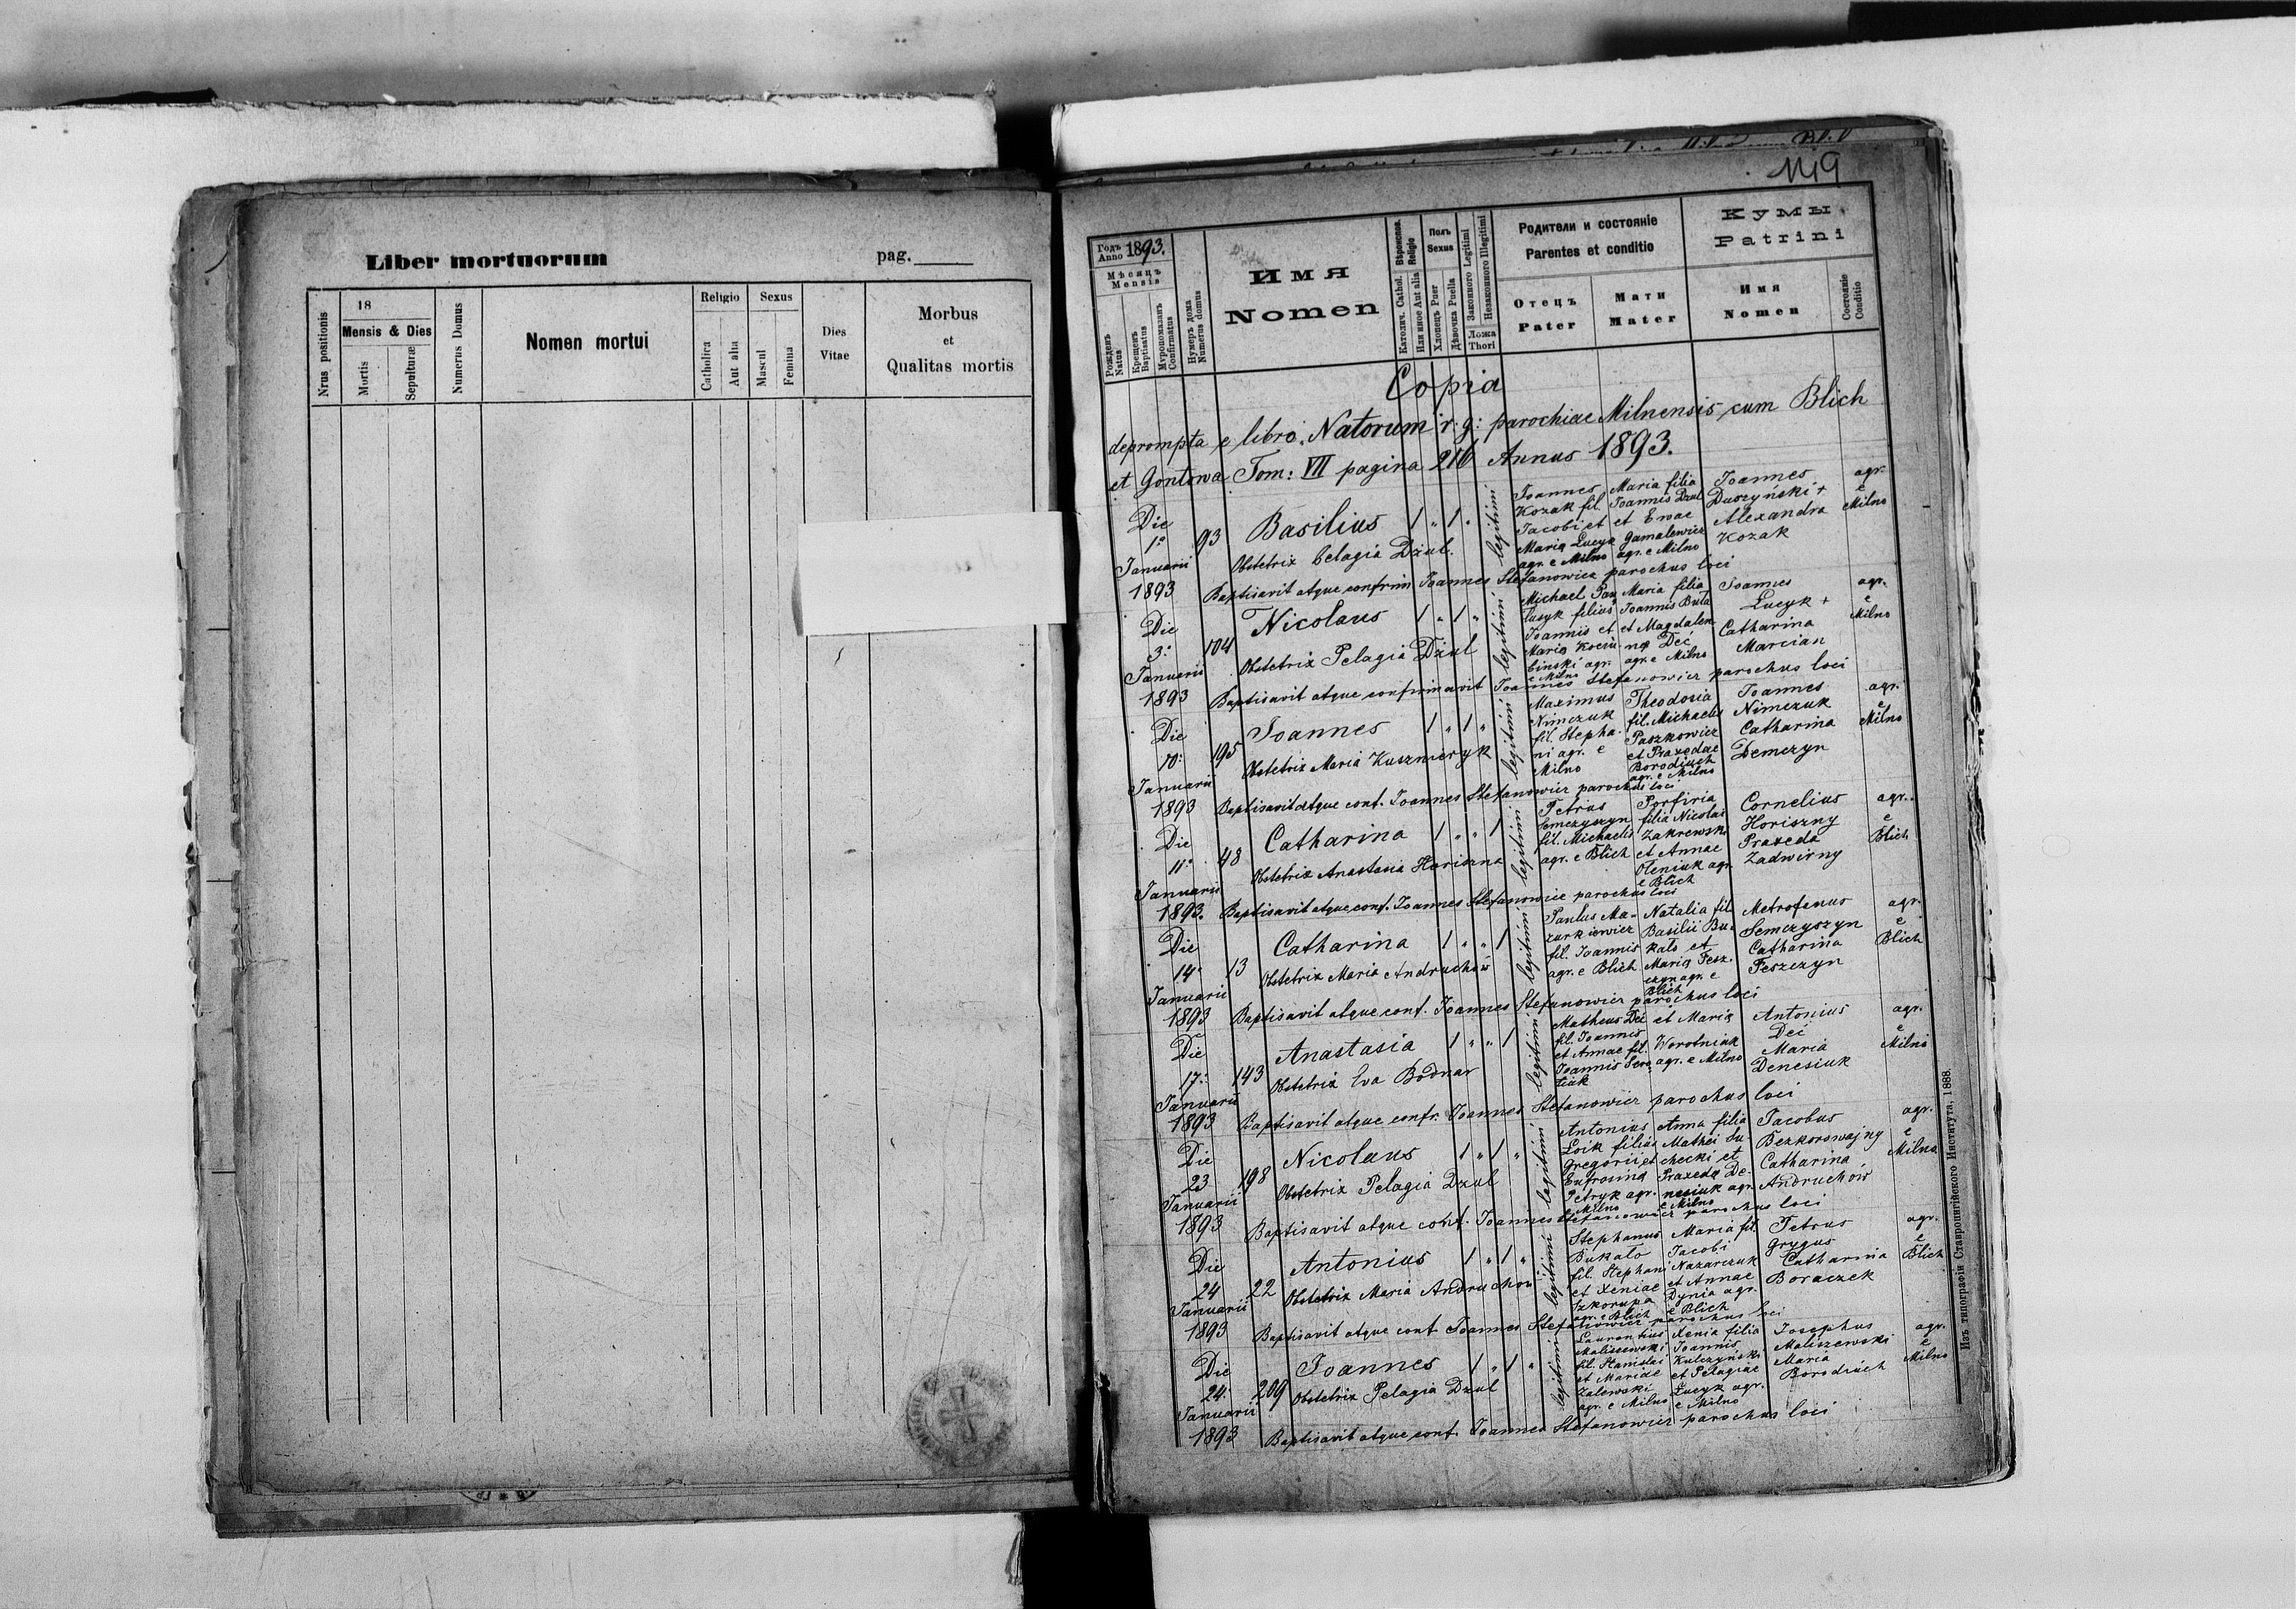 Liber mortuorum
pag.
Nrus positionis
18
Mensis & Dies
Mortis
Sepulturæ
Numerus Domus
Nomen mortui
Religio
Catholica
Aut alta
Sexus
Mascul
Femina
Dies
Vitae
Morbus
et
Qualitas mortis
119
Годъ 1893.
Anno
Мѣсяцъ
Mensis
Рожденъ
Natus
Крещенъ
Baptisatus
Мѵропомазанъ
Confirmatus
Нумеръ дома
Numerus domus
Имя
Nomen
Вѣроисповѣд.
Religio
Католич. Cathol.
Или иное Aut alia
Полъ
Sexus
Хлопецъ Puer
Дѣвочка Puella
Законного Legitimi
Незаконного Illegitimi
Ложа
Thori
Родители и состояніе
Parentes et conditio
Отецъ
Pater
Мати
Mater
Кумы
Patrini
Имя
Nomen
Состояніе
Conditio
Copia
deprompta e libro Natorum r. g: parochiae Milnensis cum Blich
et Gontowa Tom: VII pagina 216 Annus 1893.
Die
1º
Januarii
1893
93
Basilius 1 " 1 "
Obstetrix Pelagia Dżul.
legitimi
Joannes
Kozak fil.
Jacobi et
Maria Łucyk
agr. e Milno
Maria filia
Joannis Dżul
et Ewae
Gamalewicz
agr. e Milno
Joannes
Duszyński +
Alexandra
Kozak
agr.
e
Milno
Baptisavit atque confrim Joannes Stefanowicz parochus loci
Die
3º
Januarii
1893
104
Nicolaus 1 " 1 "
Obstetrix Pelagia Dżul
legitimi
Michael Pan
lusyk filius
Joannis et
Maria Kociu
binski agr.
e Milno
Maria filia
Joannis Buta
et Magdale
na Deć
agr. e Milno
Joannes
Łucyk +
Catharina
Marcian
agr.
e
Milno
Baptisavit atque confirmavit Joannes Stefanowicz parochus loci
Die
10º
Januarii
1893
195
Joannes 1 " 1 "
Obstetrix Maria Kuszmieryk
legitimi
Maximus
Nimczuk
fil. Stepha
ni agr. e
Milno
Theodosia
fil. Michaelis
Paszkowicz
et Praxedae
Borodiuch
agr. e Milno
Joannes
Nimczuk
Catharina
Demczyn
agr.
e
Milno
Baptisavit atque conf. Joannes Stefanowicz parochus loci
Die
11º
Januarii
1893.
48
Catharina 1 " " 1
Obstetrix Anastasia Horiszna
legitimi
Petrus
Semczyszyn
fil. Michaelis
agr. e Blich
Porfiria
filia Nicolai
Zakrewski
et Annae
Oleniuk agr.
e Blich
Cornelius
Horiszny
Praxeda
Zadwirny
agr.
e
Blich
Baptisavit atque conf. Joannes Stefanowicz parochus loci
Die
14º
Januarii
1893
13
Catharina 1 " " 1
Obstetrix Maria Andruchów
legitimi
Paulus Ma-
zurkiewicz
fil. Joannis
agr. e Blich
Natalia fil
Basilii Bu-
kało et
Maria Fesz-
czyn agr. e
Blich
Metrofanus
Semczyszyn
Catharina
Feszczyn
agr.
e
Blich
Baptisavit atque conf. Joannes Stefanowicz parochus loci
Die
17º
Januarii
1893
143
Anastasia 1 " " 1
Obstetrix Eva Bodnar
legitimi
Matheus Deć
fil. Joannis
et Annae fil.
Joannis Sere
tiuk
et Maria
Worotniak
agr. e Milno
Antonius
Deć
Maria
Denesiuk
agr.
e
Milno
Baptisavit atque confr. Joannes Stefanowicz parochus loci
Die
23
Januarii
1893
198
Nicolaus 1 " 1 "
Obstetrix Pelagia Dżul
legitimi
Antonius
Łoik filius
Gregorii et
Eufrosina
Petryk agr.
e Milno
Anna filia
Mathei Su
checki et
Praxeda De-
nesiuk agr.
e Milno
Jacobus
Bezkorowajny
Catharina
Andruchów
agr.
e
Milno
Baptisavit atque conf. Joannes Stefanowicz parochus loci
Die
24
Januarii
1893
22
Antonius 1 " 1 "
Obstetrix Maria Andruchow
legitimi
Stephanus
Bukało
fil. Stephani
et Xeniae
Szkorupa
agr. e Blich
Maria fil.
Jacobi
Nazarczuk
et Annae
Dynia agr.
e Blich
Petrus
Grygus
Catharina
Boraczek
agr.
e
Blich
Baptisavit atque conf. Joannes Stefanowicz parochus loci
Die
24
Januarii
1893
209
Joannes 1 " 1 "
Obstetrix Pelagia Dżul
legitimi
Laurentius
Maliszewski
fil. Stanislai
et Mariae
Zalewski
agr. e Milno
Xenia filia
Joannis
Kulczyński
et Pelagiae
Łucyk agr.
e Milno
Josephus
Maliszewski
Maria
Borodiuch
agr.
e
Milno
Baptisavit atque conf. Joannes Stefanowicz parochus loci
Изъ типографіи Ставропигійского Института, 1888.